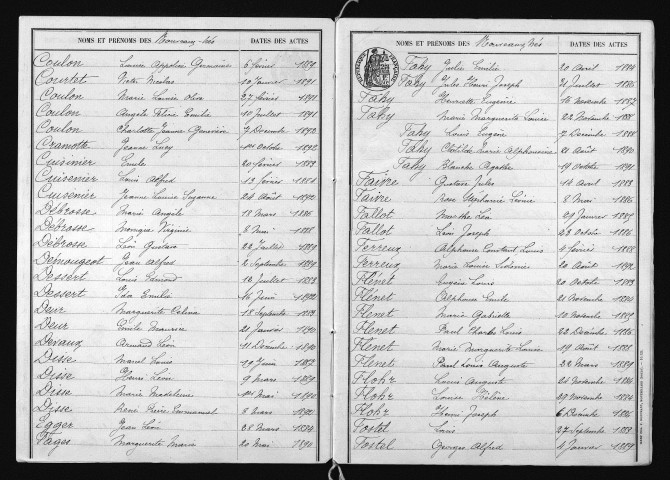 NOMS ET PRÉNOMS DES Nouveaux-nés DATES DES ACTES
Coulon Germaine 6 février
Courtet Victor Nicolas 10 Janvier 1891
Coulon Marie Louise 27 février 1891
Coulon Angèle Emilie 10 Juillet 1891
Coulon Charlotte Jeanne 7 Décembre 1892
Cramotte Jeanne Lucy 1er Octobre 1892
Cuisinier Emile 20 février 1883
Cuisenier Louis Alfred 13 février
Cuisenier Jeanne Louise Suzanne 24 Août
Debrosse Marie Angèle 18 Mars 1886
Debrosse Monique Virginie 8 Mai 1888
Debrosse Léon Gustave 22 Juillet
Démougeot Jean Alfred 2 Septembre 1890
Dessert Louis Edmond 16 Juillet 1883
Dessert Emilie 16 Juin
Deur Marguerite Célina 18 Septembre
Deur Emile Maurice 21 Janvier 1890
Devaux Armand Léon 11 Décembre 1890
Disse Marcel Louis 19 Juin
Disse Henri Léon 9 Mars
Disse Marie Madeleine 1er Mai 1890
Disse René Emmanuel 8 Mars 1892
Egger Jean Léon 28 Mars 1884
Fages Marguerite Marie 20 Mai
NOMS ET PRÉNOMS DES Nouveaux-nés DATES DES ACTES
Fahy Emilie 20 Avril 1884
Fahy Jules Henri Joseph Juillet 1885
Fahy Henriette Eugénie 16 Novembre
Fahy Marie Marguerite Louise 22 Novembre 1888
Fahy Louis Eugène 7 Décembre 1888
Fahy Clotilde Marie Alphonsine 21 Août 1890
Fahy Blanche Agathe 19 Octobre 1891
Faivre Gustave Jules 14 Avril 1883
Faivre Rose Stéphanie Léonie 8 Mai 1886
Fallot Marthe Léa 29 Janvier 1885
Fallot Léon Joseph 23 Octobre 1886
Ferreux Alphonse Constant Louis février 1888
Ferreux Marie Louise 20 Août 1892
Flénet Eugène Louis 20 Octobre 1883
Flénet Alphonse Emile 21 Novembre 1884
Flenet Marie Gabrielle 10 Novembre 1885
Flenet Paul Charles Louis 22 Décembre 1886
Flenet Marie Marguerite Louise 19 Août 1888
Flenet Paul Louis Auguste 22 Mars 1889
Flohr Louis Auguste Novembre
Flohr Louise Hélène 29 Novembre
Flohr Henri Joseph 6 Décembre 1886
Fostel Louis 27 Septembre 1883
Fostel Georges Alfred 4 Janvier 1889